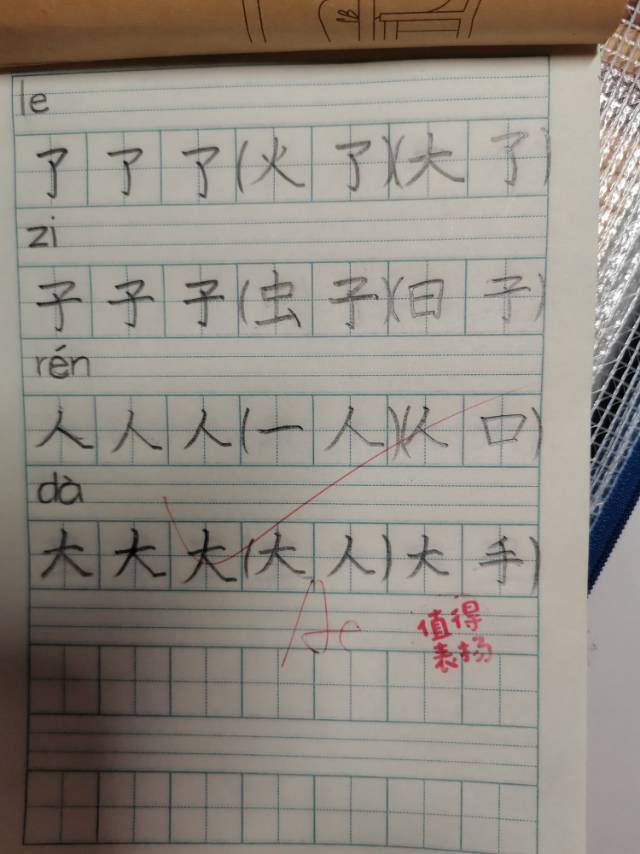 le
了了了(火了)(大了)
zi
子子子(虫子)(日子)
rén
人人人(一人)(人口)
dà
大大大(大人)大手)
值得
表扬